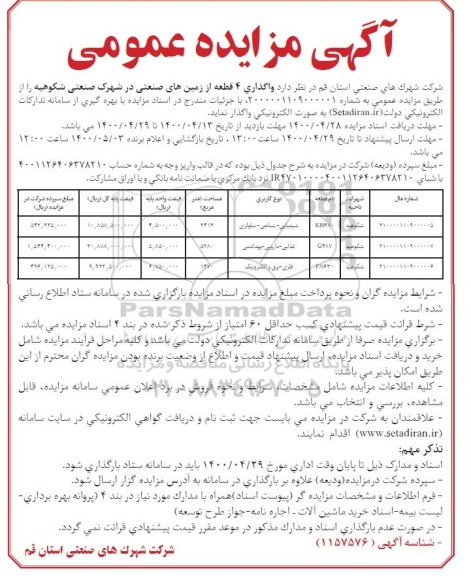 آگهی مزایده عمومی
شرکت شهرك هاي صنعتي استان قم در نظر دارد واگذاري ۴ قطعه از زمین های صنعتی در شهرک صنعتی شکوهیه را از
طريق مزايده عمومي به شماره ۲۰۰۰۰۰۱۱۰۹۰۰۰۰۰۱، با جزئیات مندرج در اسناد مزایده با بهره گیری از سامانه تدارکات
الکترونیکی دولت (Setadiran.ir) به صورت الکترونیکی واگذار نماید.
- مهلت دریافت اسناد مزایده ۱۴۰۰/۰۴/۲۸ مهلت بازدید از تاریخ ۱۴۰۰/۰۴/۱۳ تا ۱۴۰۰/۰۴/۲۹ می باشد.
- مهلت ارسال پیشنهاد تا تاریخ ۱۴۰۰/۰۴/۲۹ ساعت ۱۳:۰۰ ـ تاریخ بازگشایی و اعلام برنده ۱۴۰۰/۰۵/۰۳ ساعت ۱۲:۰۰
- مبلغ سپرده (ودیعه) شرکت در مزایده به شرح جدول ذیل بوده که در قالب واریز وجه به شماره حساب ۴۰۰۱۱۲۶۴۰۶۳۷۸۲۱۰
با شبای نزد بانک مرکزی یا ضمانت نامه بانکی و یا اوراق مشارکت.
شماره مال شهرك/ناحیه نام قطعه نوع کاربری مساحت (متر مربع) قیمت واحد پایه (ریال) قیمت پایه کل (ریال) مبلغ سپرده شرکت در مزایده (ریال)
شکوهیه شیمیایی-نساجی-سلولزی ۲۴۱۳ ۴,۵۰۰,۰۰۰ ۱۰,۸۵۸,۵۰۰,۰۰۰ ۵۴۲,۹۲۵,۰۰۰
شکوهیه غذایی-دارویی-بهداشتی ۵,۵۰۰,۰۰۰ ۱,۵۴۴,۴۰۰,۰۰۰
شکوهیه فلزی-برق و الکترونیک ۶,۷۵۰,۰۰۰ ۹,۹۲۲,۵۰۰,۰۰۰ ۴۹۶,۱۲۵,۰۰۰
- شرایط مزایده گران و نحوه پرداخت مبلغ مزایده در اسناد مزایده بارگزاری شده در سامانه ستاد اطلاع رسانی
شده است.
- شرط قرائت قیمت پیشنهادی کسب حداقل ۶۰ امتیاز از شروط ذکر شده در بند ۴ اسناد مزایده می باشد.
- برگزاری مزایده صرفا از طریق سامانه تدارکات الکترونیکی دولت می باشد و کلیه مراحل فرآیند مزایده شامل
خرید و دریافت اسناد مزایده، ارسال پیشنهاد قیمت و اطلاع از وضعیت برنده بودن مزایده گران محترم از این
طریق امکان پذیر می باشد.
- کلیه اطلاعات مزایده شامل مشخصات، شرایط و نحوه فروش در برد اعلان عمومی سامانه مزایده، قابل
مشاهده، بررسی و انتخاب می باشد.
- علاقمندان به شرکت در مزایده می بایست جهت ثبت نام و دریافت گواهی الکترونیکی در سایت سامانه
(www.setadiran.ir) اقدام نمایند.
تذکر مهم:
اسناد و مدارک ذیل تا پایان وقت اداری مورخ ۱۴۰۰/۰۴/۲۹ باید در سامانه ستاد بارگزاری شود.
- سپرده شرکت درمزایده(ودیعه) علاوه بر بارگذاری در سامانه به آدرس مزایده گزار ارسال شود.
- فرم اطلاعات و مشخصات مزایده گر (پیوست اسناد)همراه با مدارک مورد نیاز در بند ۴ (پروانه بهره برداری-
لیست بیمه-اسناد خرید ماشین آلات - اجاره نامه-جواز طرح توسعه)
- در صورت عدم بارگذاری اسناد و مدارك مذکور در موعد مقرر قیمت پیشنهادی قرائت نمی گردد.
- شناسه آگهی (۱۱۵۷۵۷۶)
شرکت شهرک های صنعتی استان قم
ParsNamadData